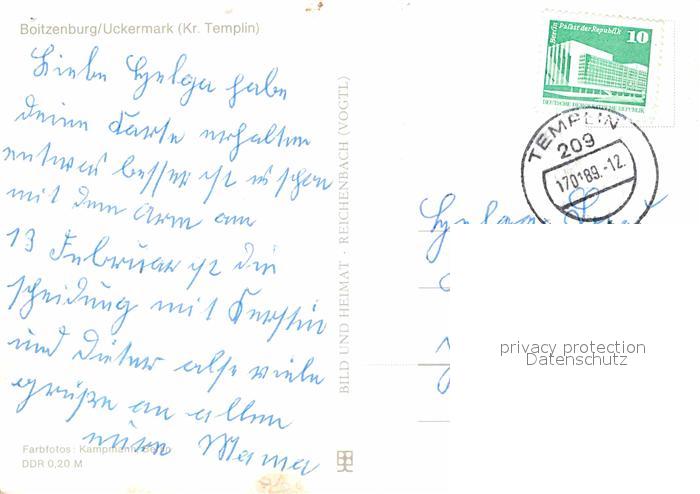 Boitzenburg/Uckermark (Kr. Templin)
Liebe Helga habe
deine Karte erhalten
etwas besser ist es schon
mit dem Arm am
13 Februar ist die
scheidung mit Kerstin
und Dieter also viele
grüße an allen
Mama
Farbfotos: Kampmann, Berlin
DDR 0,20 M
BILD UND HEIMAT · REICHENBACH (VOGTL)
Berlin Palast der Republik
10
DEUTSCHE DEMOKRATISCHE REPUBLIK
TEMPLIN
209
170189.-12
Helga
privacy protection
Datenschutz